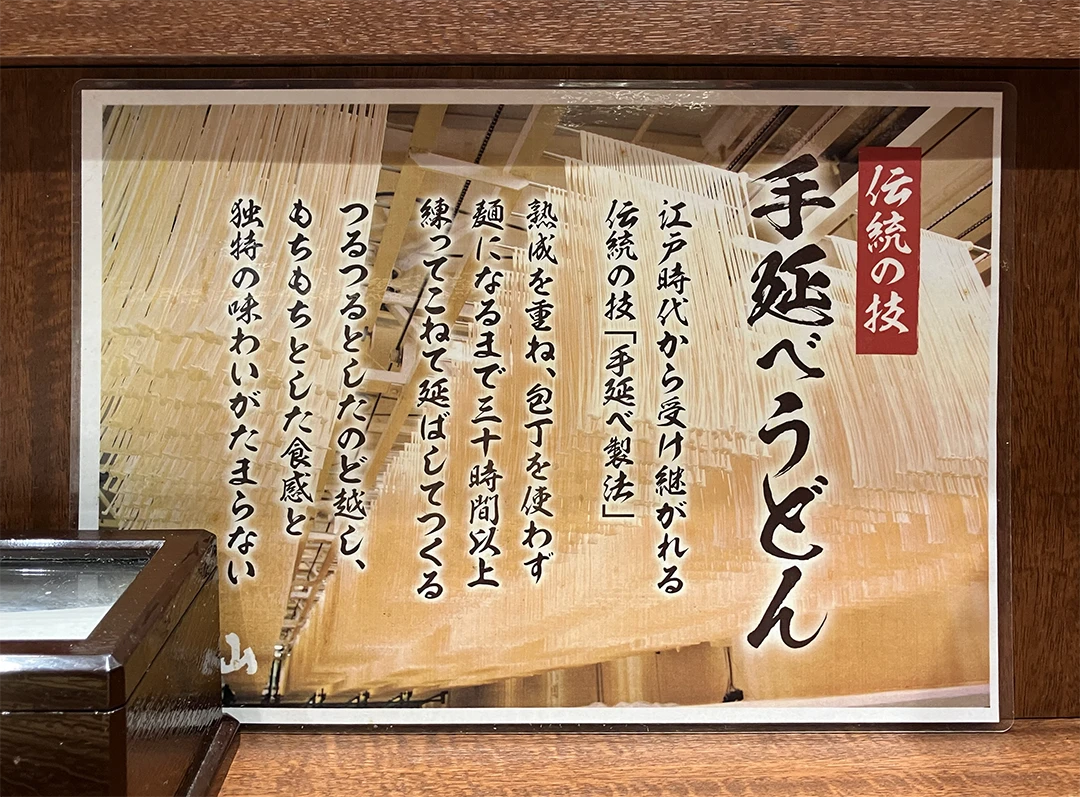 伝統の技
手延べうどん
江戸時代から受け継がれる
伝統の技「手延べ製法」
熟成を重ね、包丁を使わず
麺になるまで三十時間以上
練ってこねて延ばしてつくる
つるつるとしたのど越し、
もちもちとした食感と
独特の味わいがたまらない
山